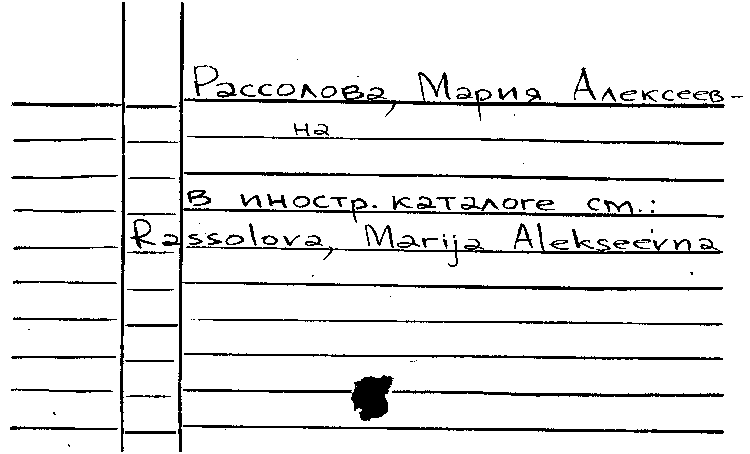 Рассолова, Мария Алексеев-
на
В иностр. каталоге см.:
Rassolova, Marija Alekseevna